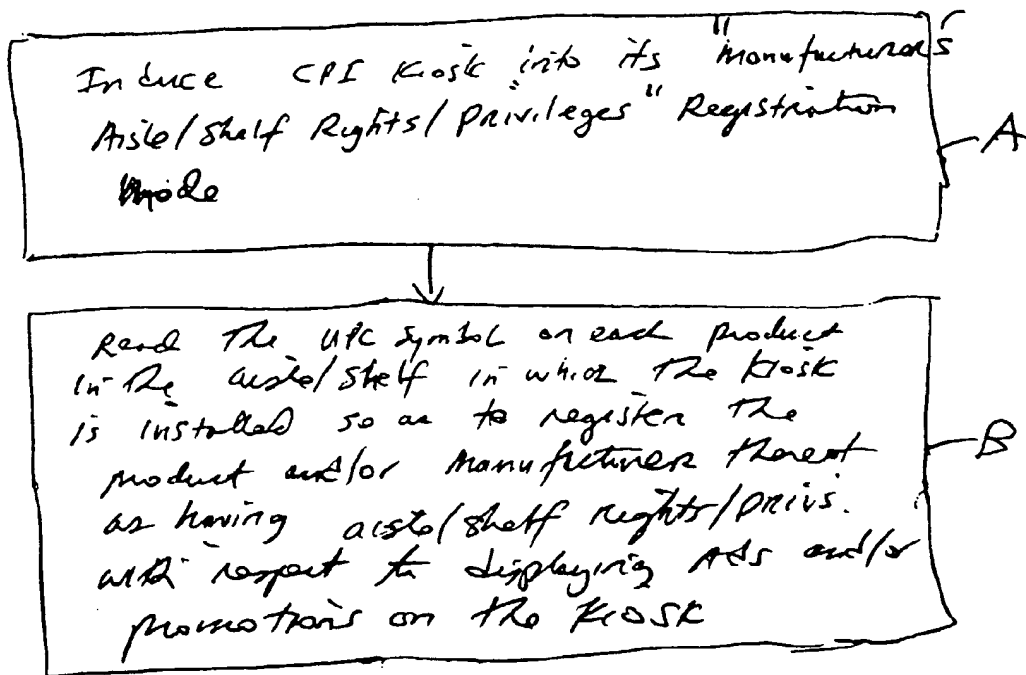 Induce CPI Kiosk into its "Manufacturers
Aisle/Shelf Rights/Privileges" Registration
Mode
A
Read The UPC symbol on each product
in The aisle/shelf in which The Kiosk
is installed so as to register The
product and/or Manufacturer thereof
as having aisle/shelf rights/privs.
with respect to displaying Ads and/or
promotions on The Kiosk
B